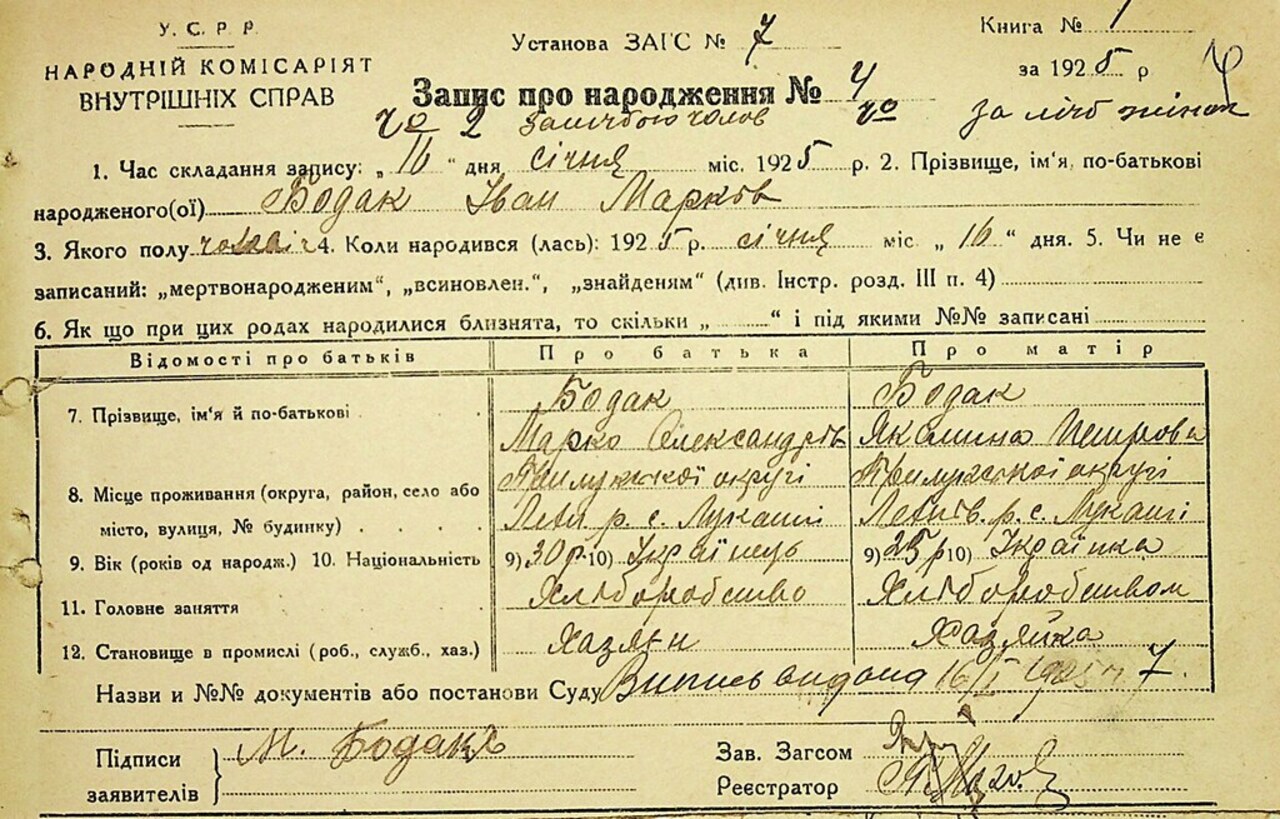 У. С. Р. Р.
НАРОДНІЙ КОМІСАРІЯТ
ВНУТРІШНІХ СПРАВ
Установа ЗАГС № 7
Книга № 1
за 1925 р
Запис про народження № 4
за лічбою чолов
за лічб жінок
1. Час складання запису: „ 16 " дня січня міс. 1925 р. 2. Прізвище, ім'я, по-батькові
народженого(ої) Бодак Іван Марків
3. Якого полу чоловіч 4. Коли народився (лась): 1925 р. січня міс „ 16 " дня. 5. Чи не є
записаний: „мертвонародженим", „всиновлен.", „знайденям" (див. Інстр. розд. III п. 4)
6. Як що при цих родах народилися близнята, то скільки „ " і під якими №№ записані
Відомості про батьків Про батька Про матір
7. Прізвище, ім'я й по-батькові Бодак Бодак
Марко Олександрів Якилина Петрова
8. Місце проживання (округа, район, село або Прилуцької округі Прилуцької округі
місто, вулиця, № будинку) р. с. Лукаші р. с. Лукаші
9. Вік (років од народж.) 10. Національність 9) 30 р 10) Українець 9) 25 р 10) Українка
11. Головне заняття Хліборобство Хліборобством
12. Становище в промислі (роб., служб., хаз.) Хазяїн Хазяйка
Назви и №№ документів або постанови Суду Випись видана 16/I 1925 7.
Підписи
заявителів } М. Бодак
Зав. Загсом
Реєстратор